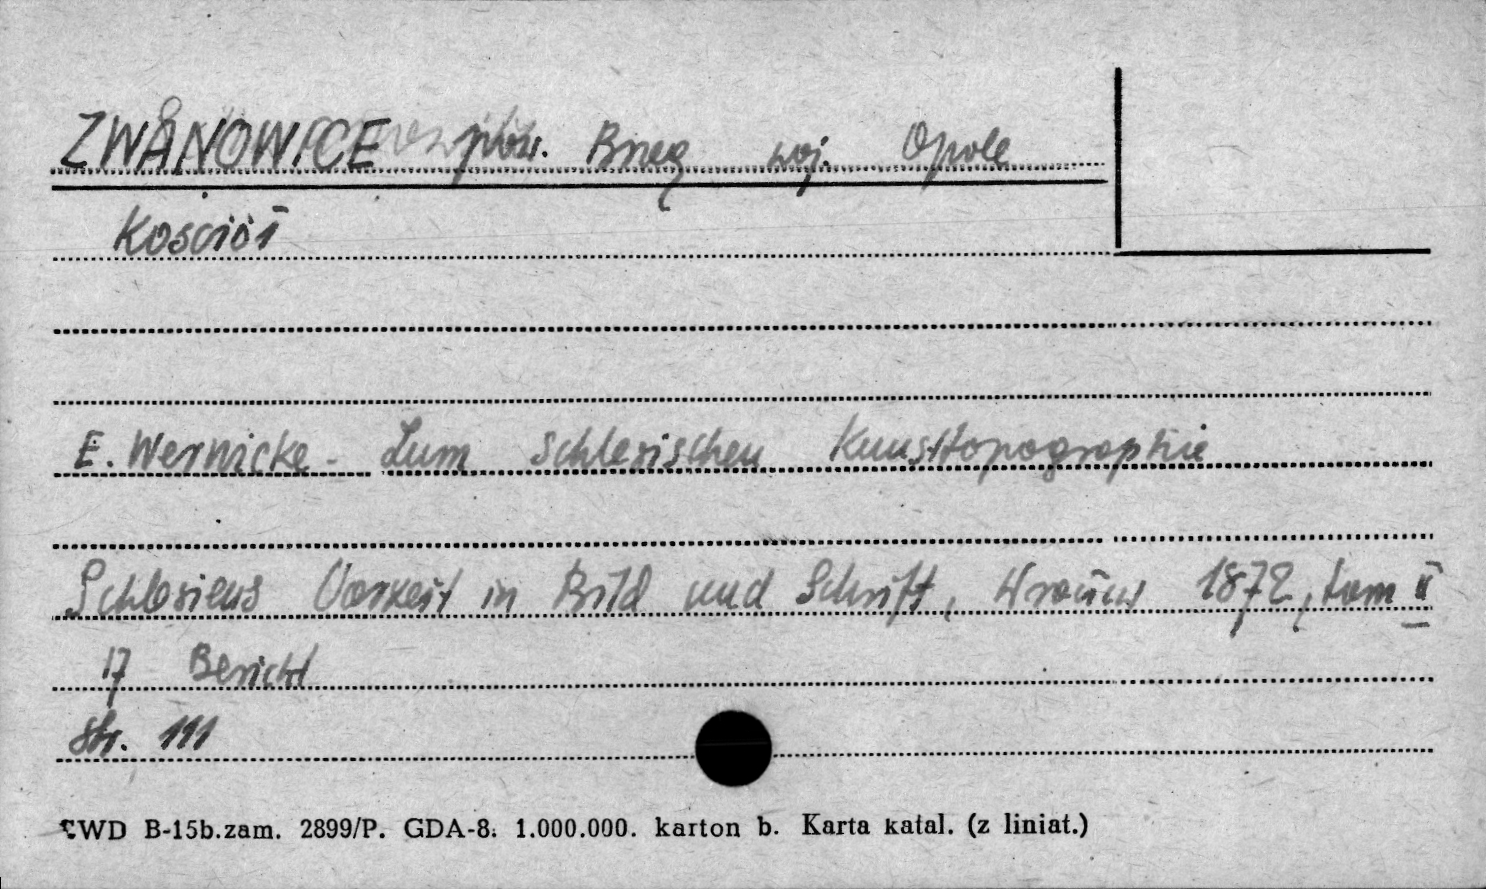 ZWANOWICE pow. Brzeg woj. Opole
Kościół
E. Wernicke - Zum Schlesischen Kunsttopographie
Schlesiens Vorzeit in Bild und Schrift, Wrocław 1872, tom II
17 Bericht
str. 111
CWD B-15b.zam. 2899/P. GDA-8. 1.000.000. karton b. Karta katal. (z liniat.)